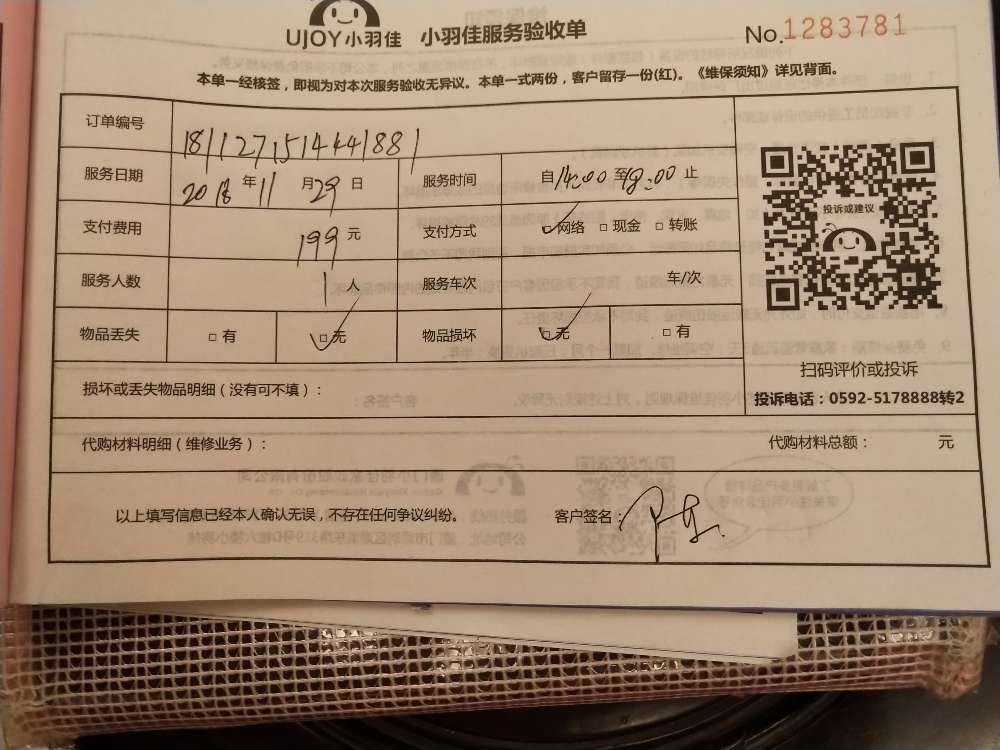 UJOY小羽佳 小羽佳服务验收单 No.1283781
本单一经核签，即视为对本次服务验收无异议。本单一式两份，客户留存一份(红)。《维保须知》详见背面。
订单编号 1811271514441881
服务日期 2018年11月29日 服务时间 自14:00至18:00止
投诉或建议
支付费用 199元 支付方式 ☑网络 □现金 □转账
服务人数 1人 服务车次 车/次
物品丢失 □有 ☑无 物品损坏 ☑无 □有
扫码评价或投诉
损坏或丢失物品明细（没有可不填）：
投诉电话：0592-5178888转2
代购材料明细（维修业务）： 代购材料总额： 元
以上填写信息已经本人确认无误，不存在任何争议纠纷。 客户签名：